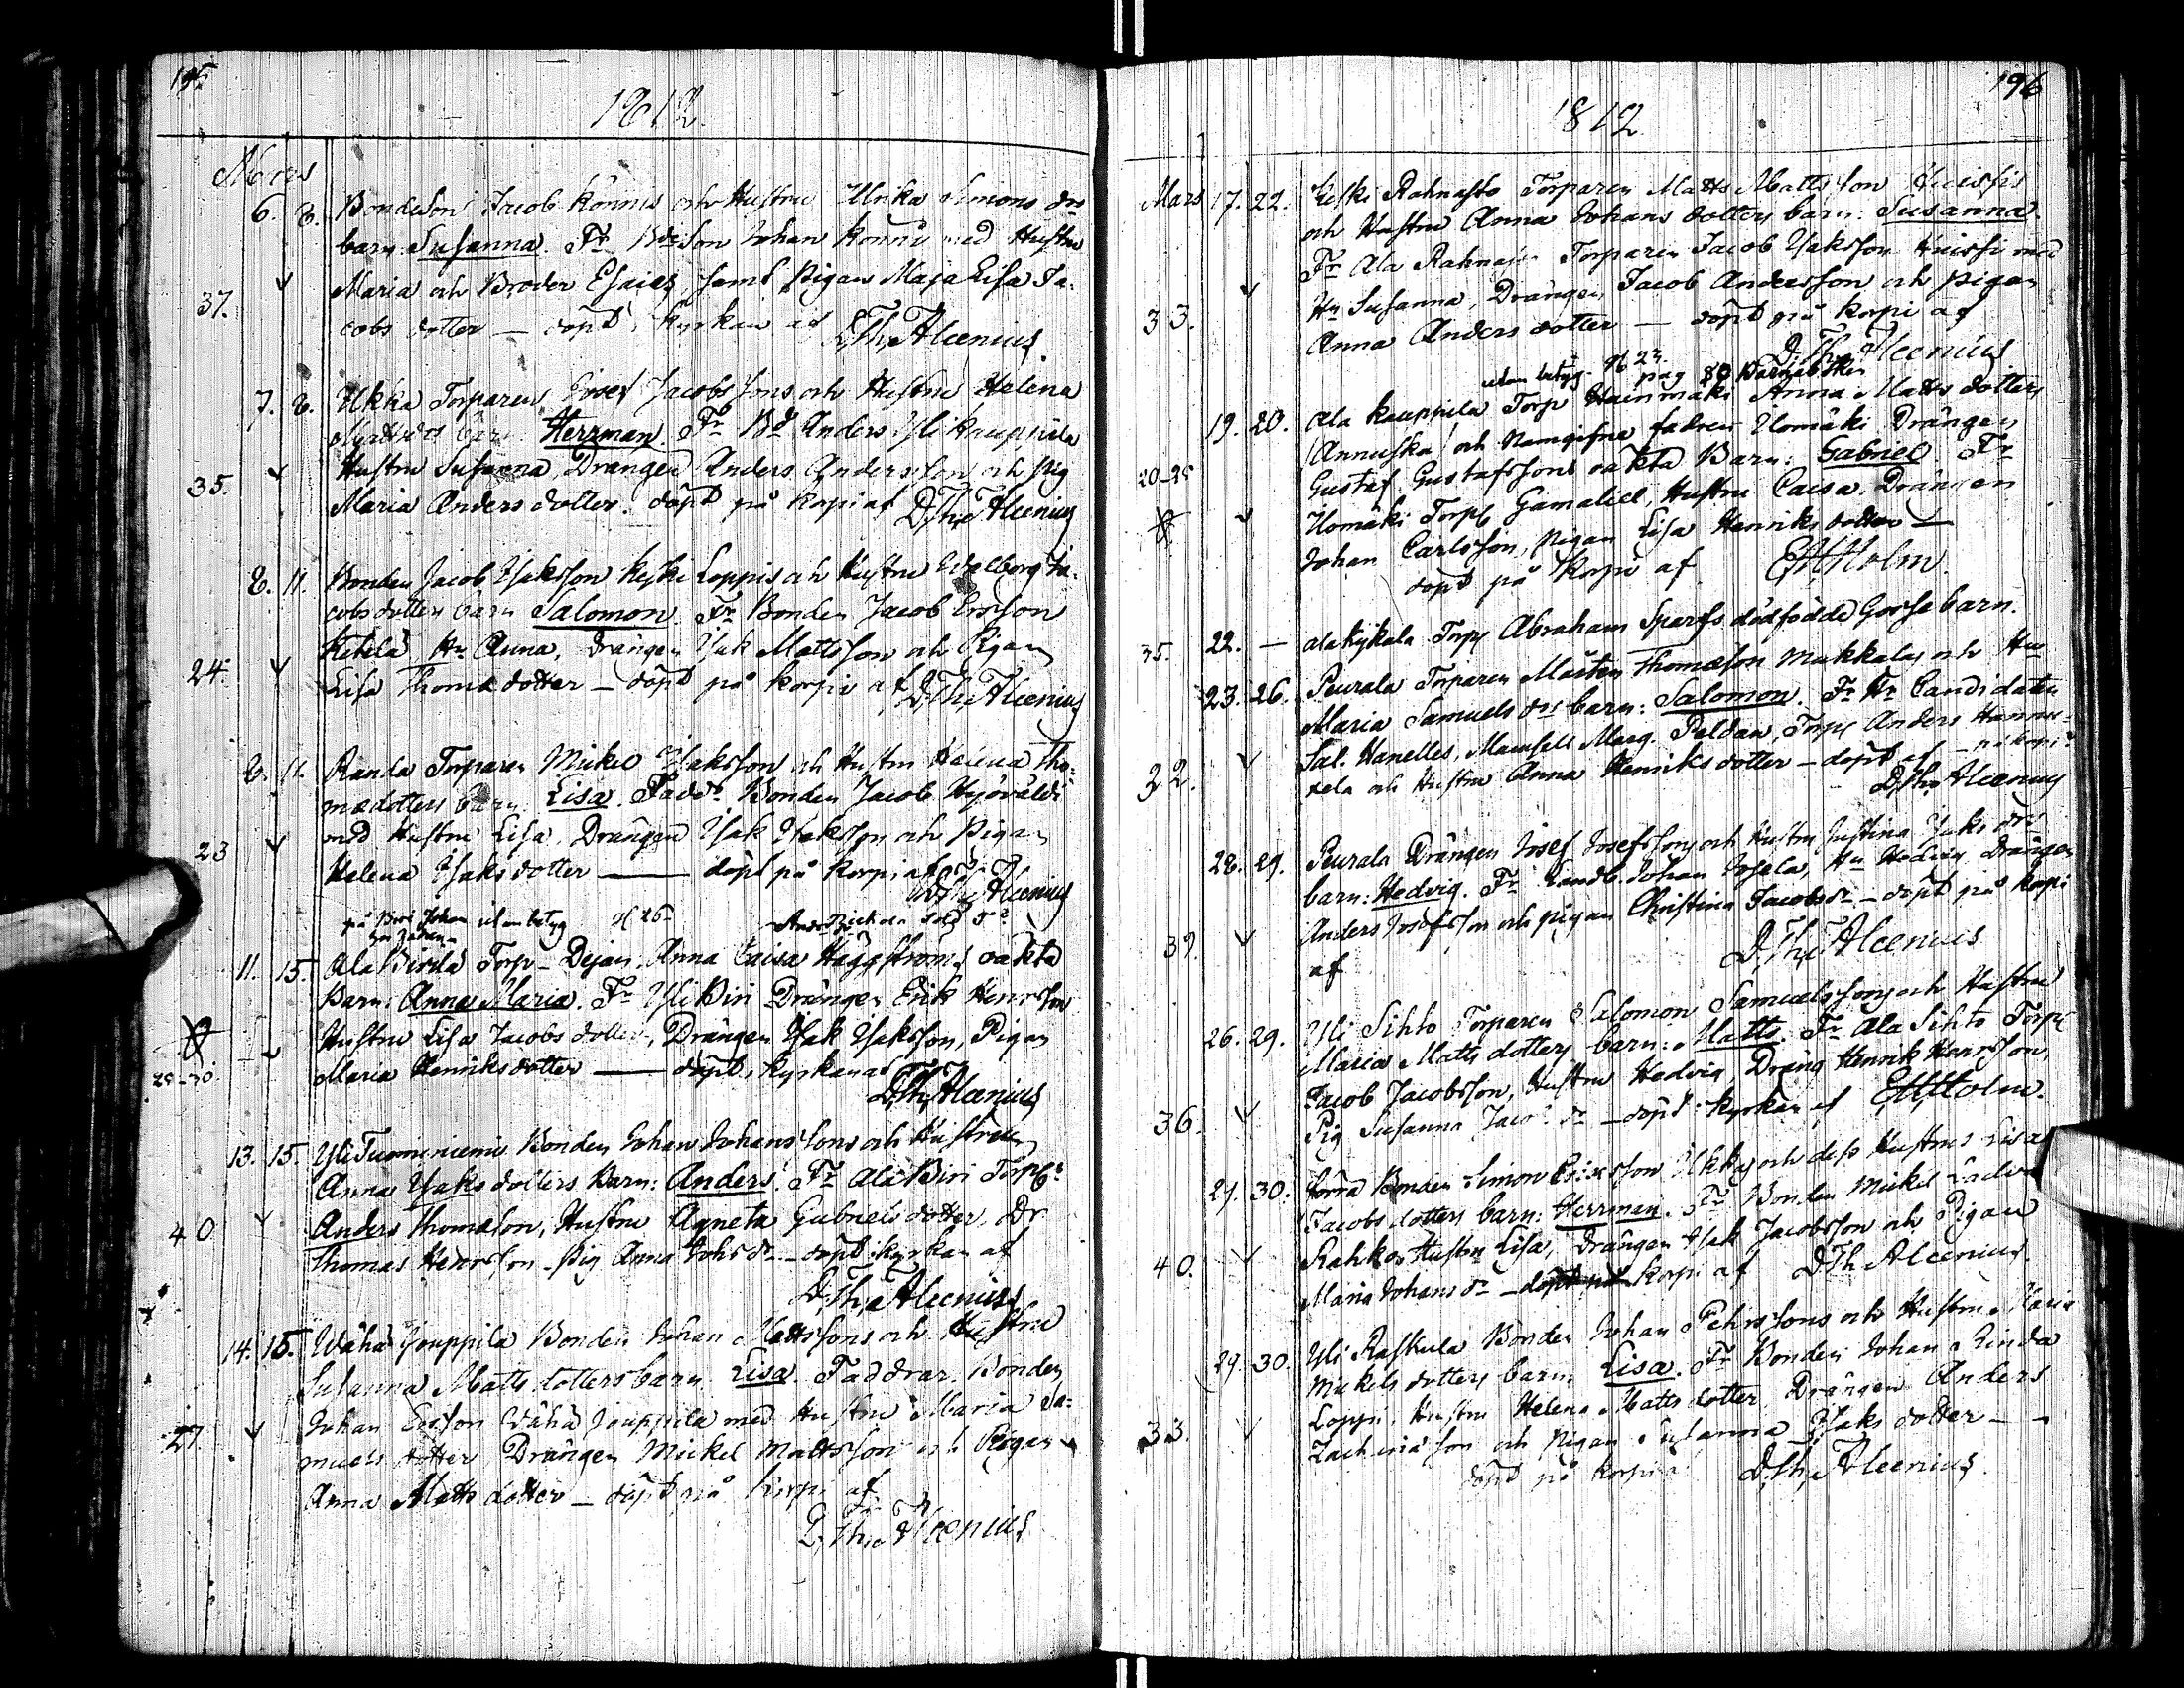 195
1812.
Mars
6. 8. Bondeson Jacob Könnis och Hustru Ulrika Simons drs
barn Susanna. Fr. Bdeson Johan Könni med Hustru
Maria och Broder Esaias samt Pigan Maja Lisa Ja-
37.
cobs dotter — döpt i kyrkan af D, Th, Alcenius.
7. 8. Ukka Torparen Josef Jacobssons och Hustru Helena
Mattsdrs barn Herrman. Fr. Bd. Anders Yli Kauppila
Hustru Susanna, Drängen Anders Andersson och pig
35.
Maria Anders dotter. döpt på Korpi af D, Th, Alcenius
8. 11. Bonden Jacob Isaksson Keski Loppis och Hustru Walborg Ja-
cobs dotters barn Salomon. Fr. Bonden Jacob Ersson
Ketelä Hu Anna, Drängen Isak Mattsson och Pigan
24.
Lisa Thomædotter — döpt på Korpi af D, Th, Alcenius
8. 11. Randa Torparen Mickel Isaksson och Hustru Helena Tho-
mædotters barn Lisa. Faddr. Bonden Jacob
23
med Hustru Lisa, Drängen Isak Isaksson och Pigan
Helena Isaks dotter — döpt på Korpi af
D, Th, Alcenius
utan betyg
11. 15. Ala Torp- Dejan Anna Caisa Häggströms oäkta
Barn: Anna Maria. Fr. Yli Biri Drängen Erik Henrsson
Hustru Lisa Jacobs dotter, Drängen Isak Isaksson, Pigan
25-30.
Maria Henriks dotter — döpt i kyrkan af
D, Th, Alcenius
13. 15. Yli Bonden Johan Johanssons och Hustru
Anna Isaks dotters Barn: Anders. Fr. Ala Biri Torp.
40
Anders Thomæson, Hustru Agneta Gabriels dotter, Dr
Thomas Henrsson, Pig Anna Johs dr — döpt i kyrkan af
D, Th, Alcenius
14. 15. Wähä Jouppila Bonden Johan Mattssons och Hustru
Susanna Matts dotters barn Lisa. Faddrar. Bonden
27.
Johan Ersson Wähä Jouppila med Hustru Maria Sa-
muels dotter Drängen Mickel Mattsson och Pigan
Anna Matts dotter — döpt på Korpi af
D, Th, Alcenius
196
1812
Mars 17. 22. Keski Rahnasto Torparen Matts Mattsson Huissis
och Hustru Anna Johans dotters barn: Susanna.
Fr. Ala Torparen Jacob Isaksson Huissi med
33.
Hu Susanna, Drängen Jacob Andersson och pigan
Anna Anders dotter — döpt på Korpi af
D, Th, Alcenius
utan betyg. pag
19. 20. Ala Kauppila Torp Anna Matts dotters
(Annuska) och Namgifne fadren Ilomäki Drängen
20-25
Gustaf Gustafssons oäkta Barn: Gabriel. Fr.
Ilomäki Torp Gamaliel, Hustru Caisa, Drängen
Johan Carlsson, pigan Lisa Henriks dotter —
döpt på Korpi af EHHolm.
35. 22. — Alakykala Torp Abraham Sparfs dödfödde Gossebarn.
23. 26. Peurala Torparen Mårten Thomæson Mukkalas och Hu
Maria Samuels drs barn: Salomon. Fr. Hr Candidaten
Sal. Hanelles, Mamsell Marg. Paldan, Torp Anders Hannuk-
32.
sela och Hustru Anna Henriks dotter — döpt af — på Korpi
D, Th, Alcenius
28. 29. Peurala Drängen Josef Josefssons och Hustru Justina Isaks drs
barn: Hedvig. Fr. Landb. Johan Hu Hedvig Drängen
39.
Anders Josefsson och pigan Christina Jacobsdr — döpt på Korpi
af D, Th, Alcenius
26. 29. Yli Sihto Torparen Salomon Samuelssons och Hustru
Maria Matts dotters barn: Matts. Fr. Ala Sihto Torp
Jacob Jacobsson, Hustru Hedvig Dräng Henrik Henrsson
36.
Pig Susanna Jacobs dr — döpt i kyrkan af EHHolm.
29. 30. Bonden Simon Ersson Ukkas och dess Hustrus Lisa
Jacobs dotters barn: Herrman. Fr. Bonden Mickel
40.
Rahkos Hustru Lisa, Drängen Isak Jacobsson och Pigan
Maria Johans dr — döpt på Korpi af D Th Alcenius
29. 30. Yli Raskula Bonden Johan Pehrssons och Hustru Maria
Mickels dotters barn Lisa. Fr. Bonden Johan Rinda
Loppi. Hustru Helena Matts dotter Drängen Anders
33.
Zachriäson och Pigan Susanna Isaks dotter —
döpt på Korpi af D, Th, Alcenius.